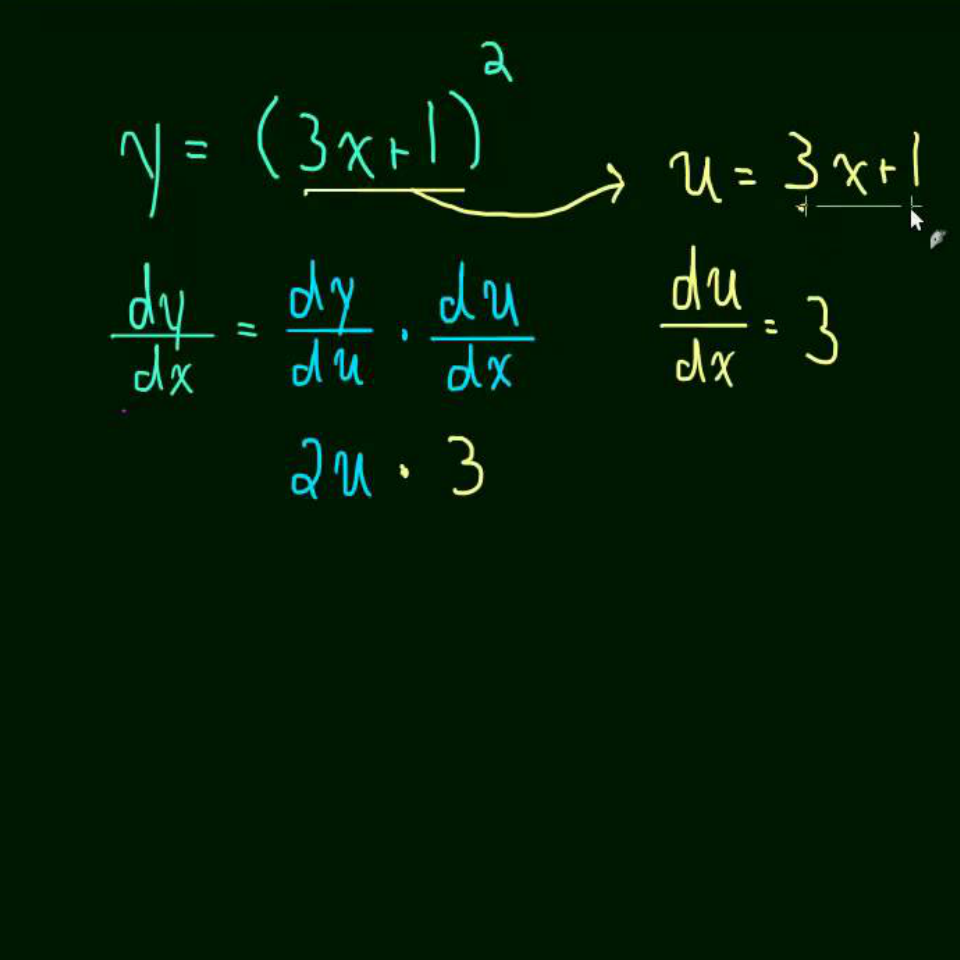 y = (3x+1)² u = 3x+1
dy/dx = dy/du · du/dx du/dx = 3
2u · 3